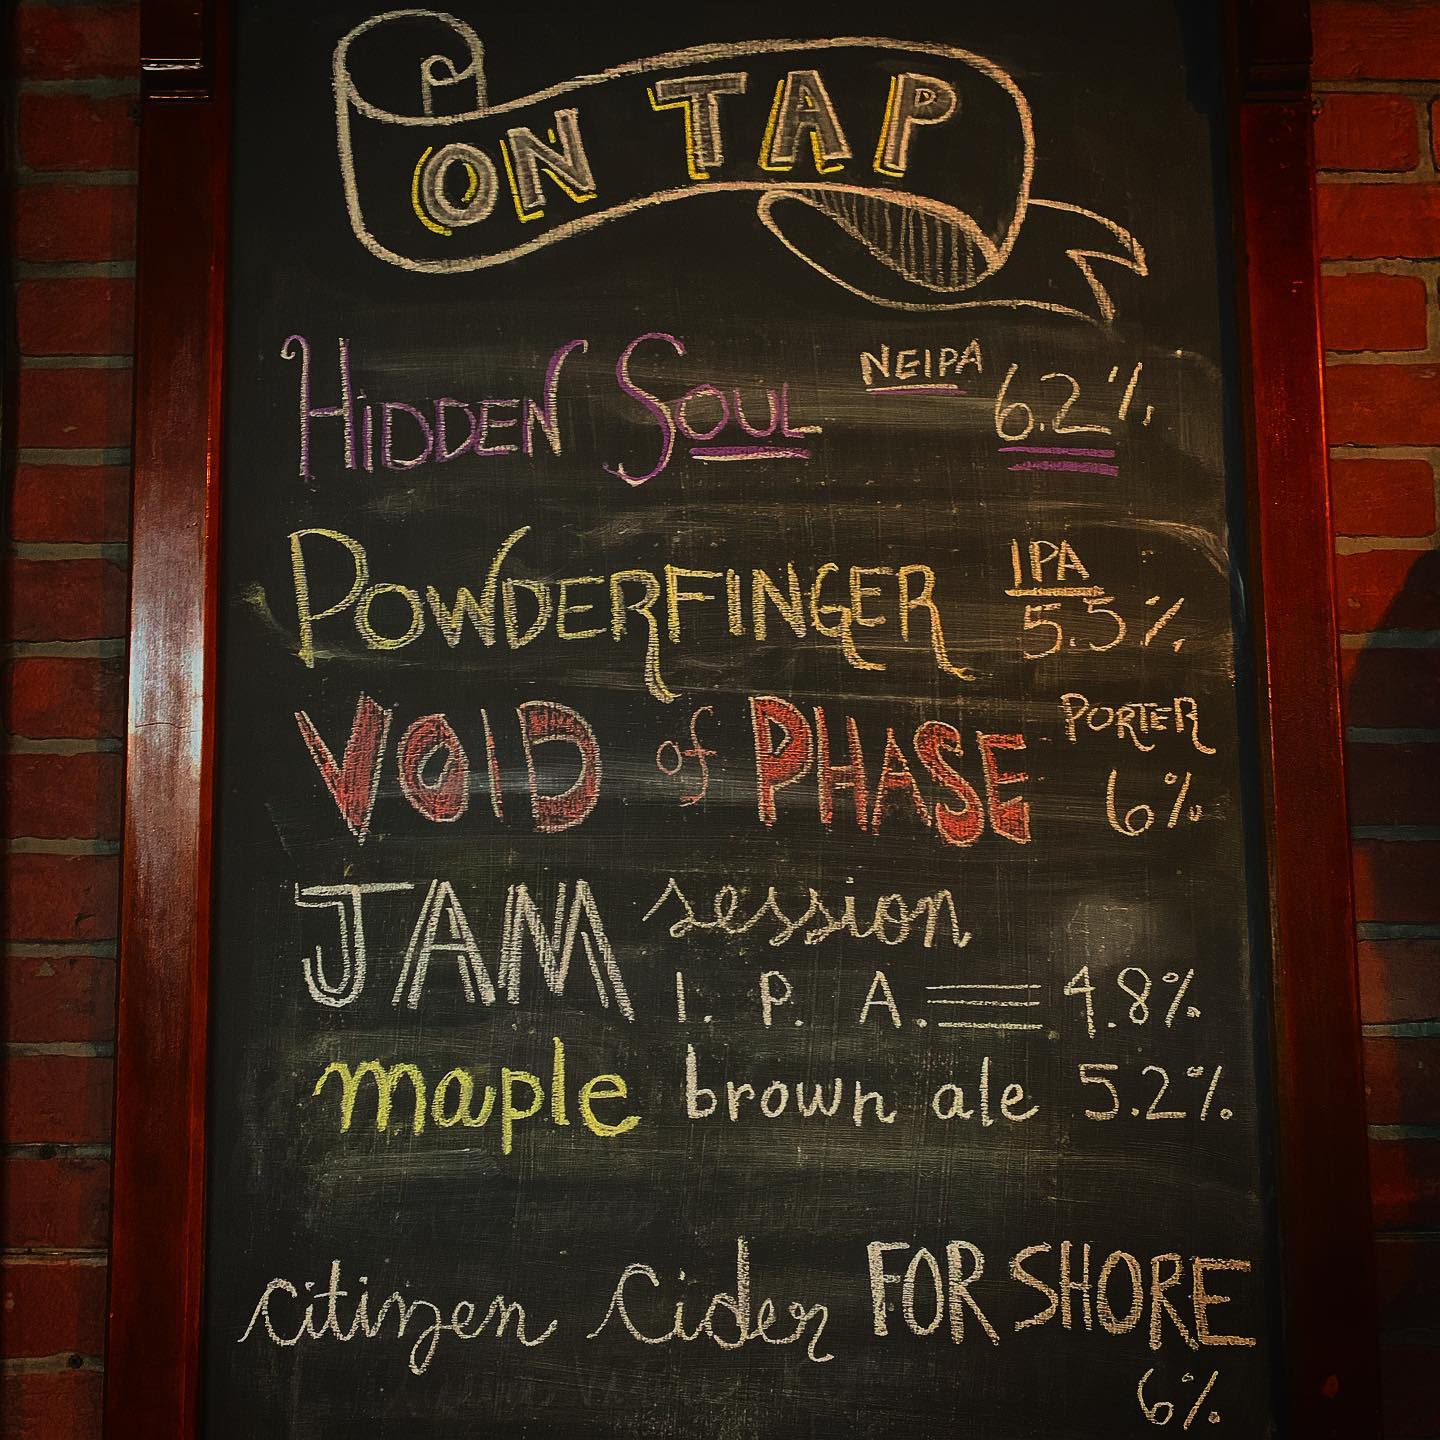 ON TAP
HIDDEN SOUL NEIPA 6.2%
POWDERFINGER IPA 5.5%
VOID of PHASE PORTER 6%
JAM session
I. P. A. 4.8%
maple brown ale 5.2%
citizen Cider FOR SHORE
6%